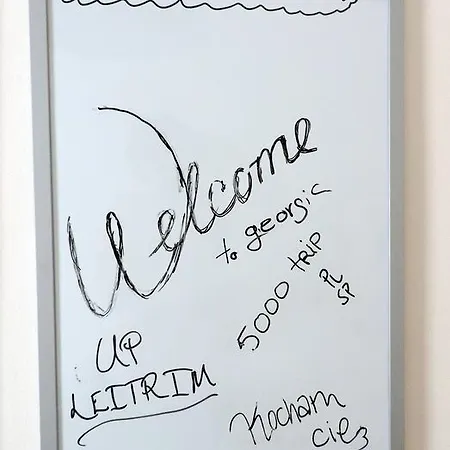 Welcome
to georgia
5000 trip
PL
SP
UP
LEITRIM
Kocham
Cię